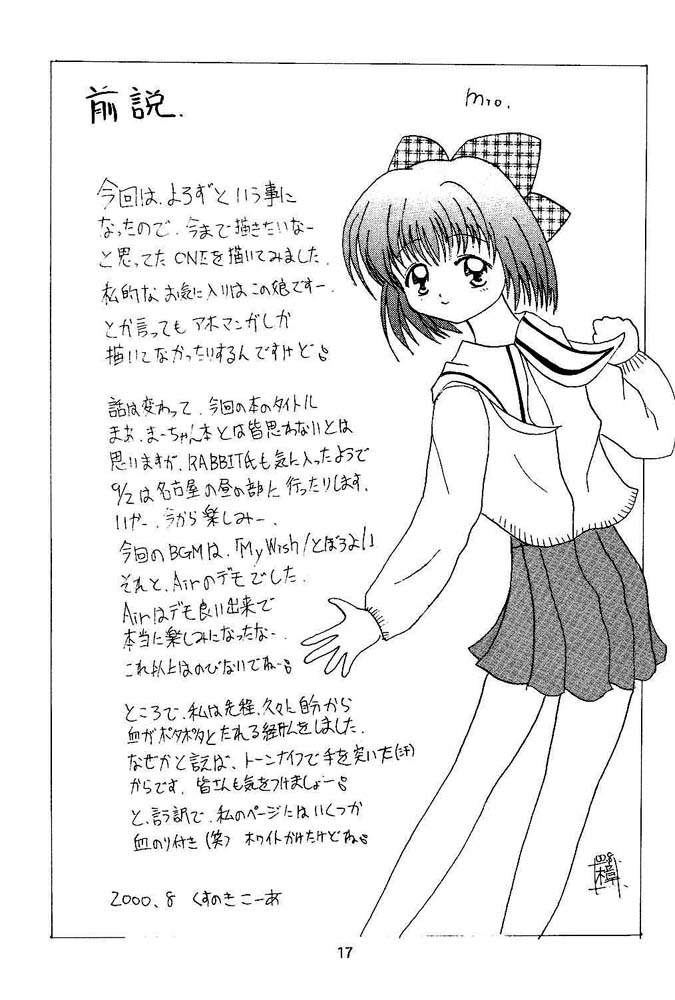 前説.
Mio.
今回は、よろずという事に
なったので、今まで描きたいなー
と思ってたONEを描いてみました.
私的なお気に入りはこの娘ですー.
とか言ってもアホマンガしか
描いてなかったりするんですけど。
話は変わって、今回の本のタイトル
まぁ、まーちゃん本とは皆思わないとは
思いますが、RABBIT氏も気に入ったようで
9/2は名古屋の昼の部に行ったりします.
いやー、今から楽しみー.
今回のBGMは、「My Wish/とぼうよ!」
それと、Airのデモでした.
Airはデモ良い出来で
本当に楽しみになったなー.
これ以上はのびないでねー。
ところで、私は先程、久々に自分から
血がポタポタとたれる経験をしました.
なぜかと言えば、トーンナイフで手を突いた(汗)
からです. 皆さんも気をつけましょー。
と、言う訳で、私のページにはいくつか
血のり付き(笑) ホワイトかけたけどね。
2000.8 くすのきこーあ
17